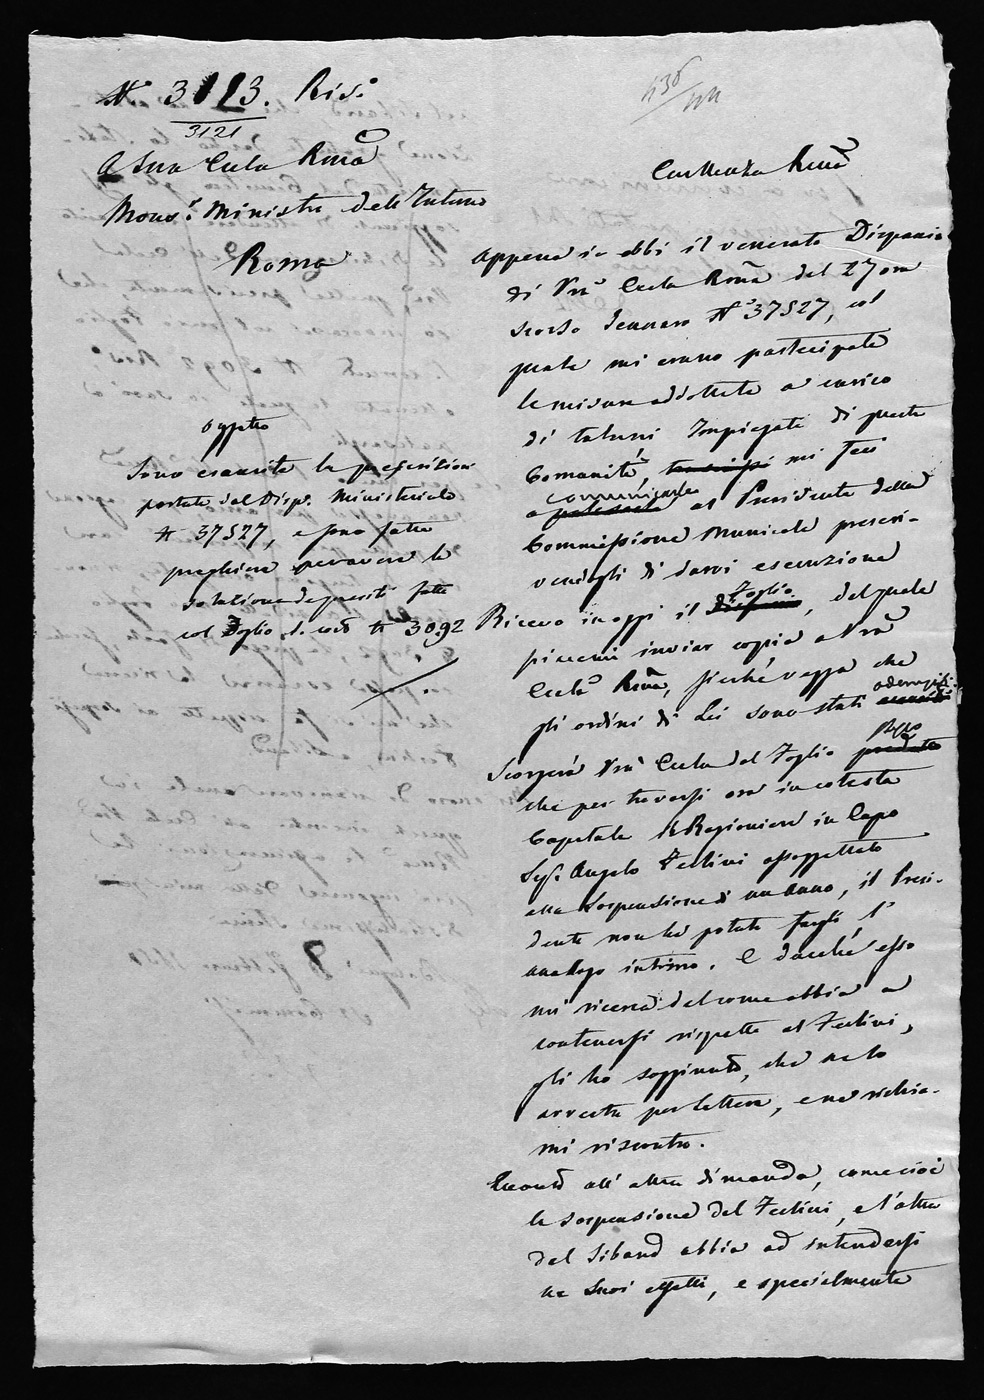 N.° 3123. Ris.°
3121
A Sua Ecclza Rma
Mons.r Ministro dell'Interno
Roma
Oggetto
Sono esaurite le prescrizioni
portate dal Disp. Ministeriale
N 37527, e sono fatte
preghiere per avere la
soluzione de' quesiti fatti
col Foglio N 3092
Eccellenza Rma
Appena io ebbi il venerato Dispaccio
di Vra Ecclza Rma del 27 ora
scorso Gennaro N° 37527, col
quale mi erano partecipate
le misure addottate a carico
di taluni Impiegati di questa
Comunità mi feci
a comunicarlo al Presidente della
Commissione Municale prescri-
vendogli di darvi esecuzione
Ricevo in oggi il Foglio, del quale
piacemi inviar copia a Vra
Ecclza Rma, perché vegga che
gli ordini di Lei sono stati
Scorgerà Vra Ecclza dal Foglio
che per trovarsi ora in cotesta
Capitale il Ragioniere in Capo
Sig. Angelo Festini assoggettato
alla Sospensione di un Anno, il Presi-
dente non ha potuto fargli l'
analogo intimo. E dacché esso
mi ricerca del come abbia a
contenersi rispetto al Festini,
gli ho soggiunto, che ne lo
avverta per lettera, e ne richia-
mi riscontro.
Quanto all'altra dimanda, come cioè
la sospensione del Festini, e l'altra
del abbia ad intendersi
ne suoi effetti, e specialmente